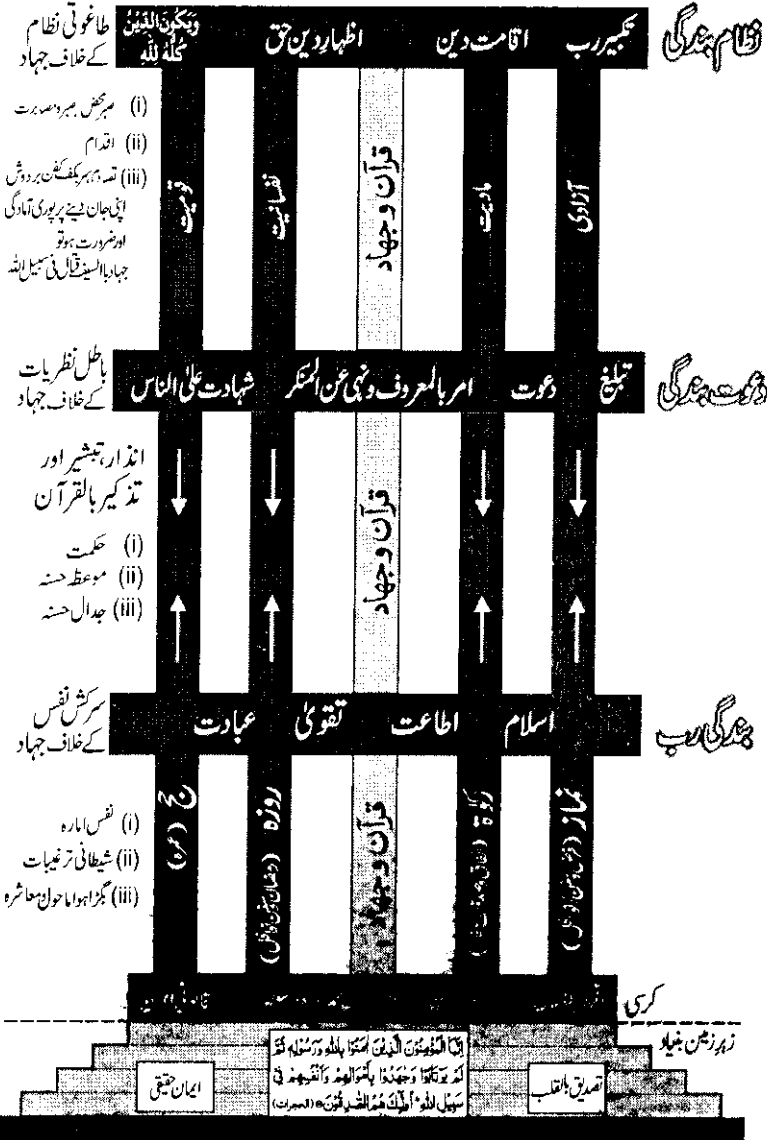 نظام بندگی
تکبیر رب اقامت دین اظہارِ دین حق وَیَکُونَ الدِّیْنُ کُلُّہٗ لِلّٰہِ
طاغوتی نظام
کے خلاف جہاد
(i) صبر محض، صبر و مصابرت
(ii) اقدام
(iii) تصادم سربکف کفن بردوش
اپنی جان دینے پر پوری آمادگی
اور ضرورت ہو تو
جہاد بالسیف قتال فی سبیل اللہ
آزادی
مادیت
قرآن و جہاد
نفسانیت
قومیت
دعوت بندگی
تبلیغ دعوت امر بالمعروف و نہی عن المنکر شہادت علی الناس
باطل نظریات
کے خلاف جہاد
انذار، تبشیر اور
تذکیر بالقرآن
(i) حکمت
(ii) موعظہ حسنہ
(iii) جدال حسنہ
قرآن و جہاد
بندگی رب
اسلام اطاعت تقویٰ عبادت
سرکش نفس
کے خلاف جہاد
(i) نفس امارہ
(ii) شیطانی ترغیبات
(iii) بگڑا ہوا ماحول و معاشرہ
نماز
زکوٰۃ
قرآن و جہاد
روزہ
حج (عمرہ)
کرسی
زیر زمین بنیاد
تصدیق بالقلب
اِنَّمَا الْمُؤْمِنُوْنَ الَّذِیْنَ اٰمَنُوْا بِاللّٰہِ وَرَسُوْلِہٖ ثُمَّ
لَمْ یَرْتَابُوْا وَجٰہَدُوْا بِاَمْوَالِہِمْ وَاَنْفُسِہِمْ فِیْ
سَبِیْلِ اللّٰہِ اُولٰٓئِکَ ہُمُ الصّٰدِقُوْنَ (الحجرات)
ایمان حقیقی